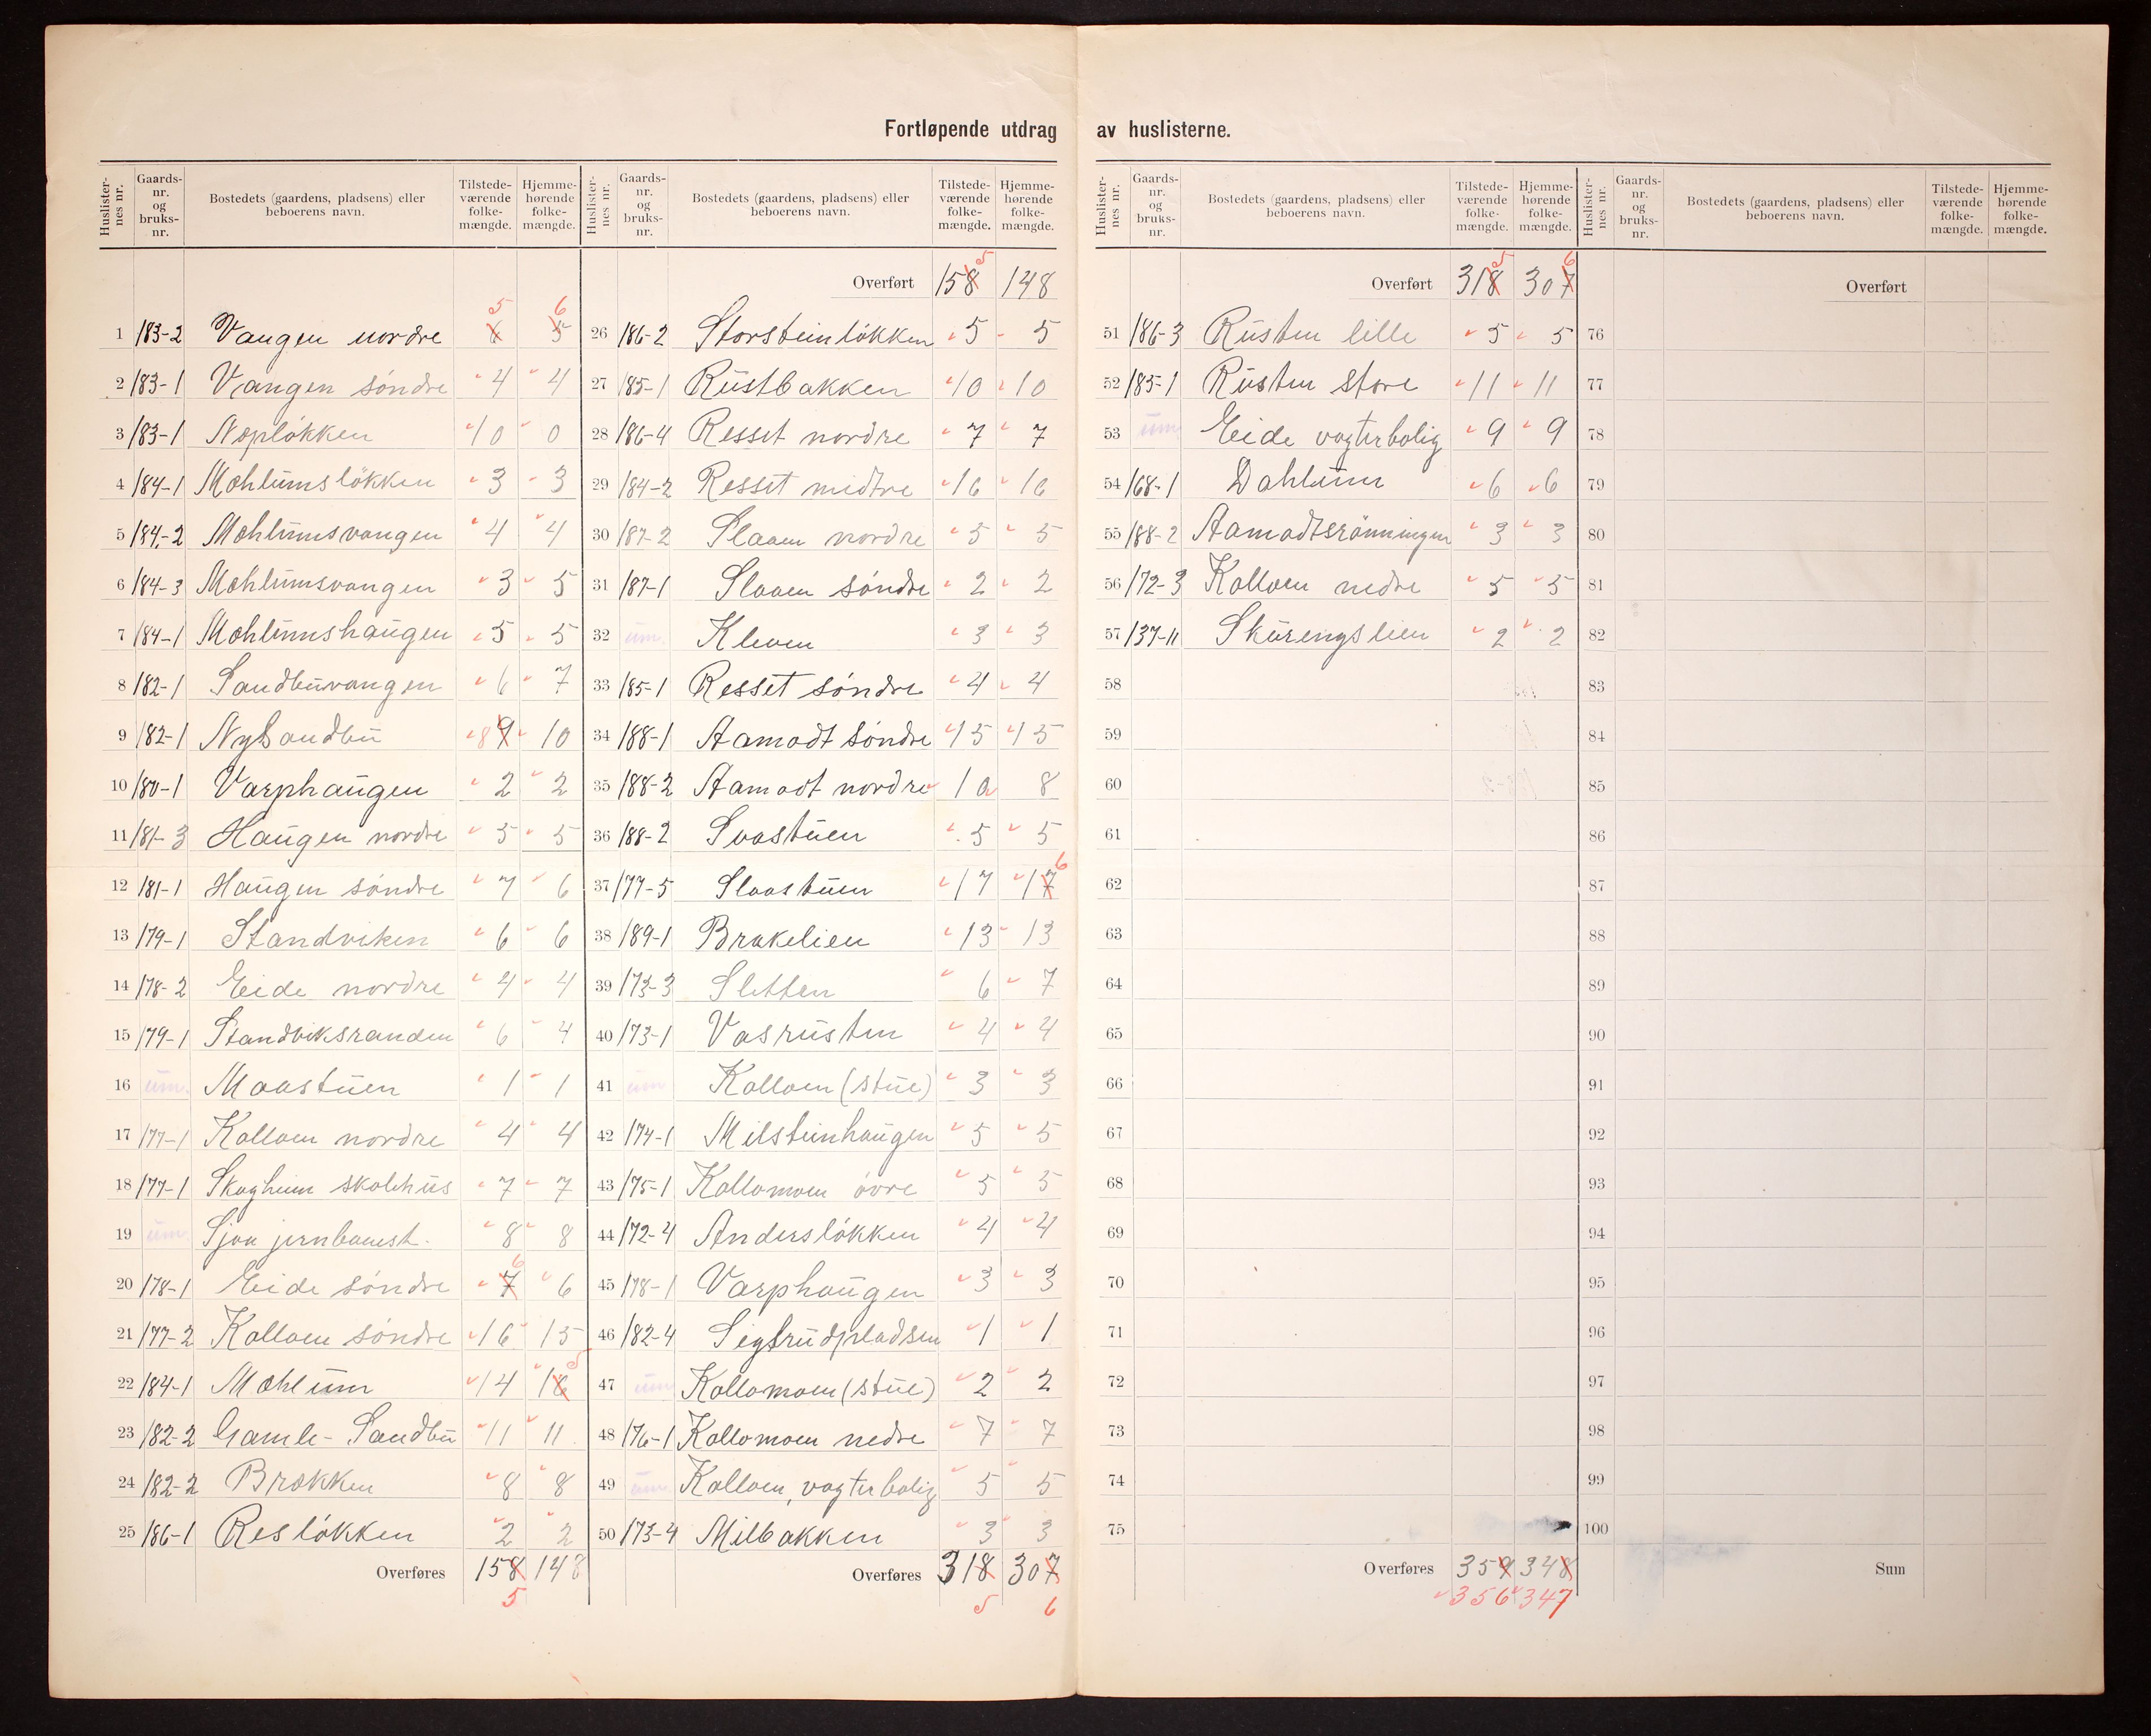 Fortløpende utdrag av huslisterne.
Huslister-nes nr. Gaards-nr. og bruks-nr. Bostedets (gaardens, pladsens) eller beboerens navn. Tilstede-værende folke-mængde. Hjemme-hørende folke-mængde.
1 183-2 Vangen nordre 5 6
2 183-1 Vangen söndre 4 4
3 183-1 Nopløkken 10 0
4 184-1 Mæhlumsløkken 3 3
5 184-2 Mæhlumsvangen 4 4
6 184-3 Mæhlumsvangen 3 5
7 184-1 Mæhlumshaugen 5 5
8 182-1 Sandbuvangen 6 7
9 182-1 Ny Sandbu 8 9 10
10 180-1 Varphaugen 2 2
11 181-3 Haugen nordre 5 5
12 181-1 Haugen søndre 7 6
13 179-1 Standviken 6 6
14 178-2 Eide nordre 4 4
15 179-1 Standviksranden 6 4
16 um. Maastuen 1 1
17 177-1 Kolloen nordre 4 4
18 177-1 Skogheim skolehus 7 7
19 um. Sjoa jernbanest. 8 8
20 178-1 Eide søndre 7 6 6
21 177-2 Kolloen søndre 16 15
22 184-1 Mæhlum 14 16 5
23 182-2 Gamle-Sandbu 11 11
24 182-2 Brækken 8 8
25 186-1 Resløkken 2 2
Overføres 158 148
5
Huslister-nes nr. Gaards-nr. og bruks-nr. Bostedets (gaardens, pladsens) eller beboerens navn. Tilstede-værende folke-mængde. Hjemme-hørende folke-mængde.
Overført 158 5 148
26 186-2 Storsteinløkken 5 5
27 185-1 Rustbakken 10 10
28 186-4 Resset nordre 7 7
29 184-2 Resset midtre 16 16
30 187-2 Slaaen nordre 5 5
31 187-1 Slaaen søndre 2 2
32 um. Kleven 3 3
33 185-1 Resset søndre 4 4
34 188-1 Aamodt søndre 15 15
35 188-2 Aamodt nordre 10 8
36 188-2 Svastuen 5 5
37 177-5 Slaastuen 17 17 6
38 189-1 Brakelien 13 13
39 173-3 Sletten 6 7
40 173-1 Vasrusten 4 4
41 um Kolloen (stue) 3 3
42 174-1 Milsteinhaugen 5 5
43 175-1 Kollomoen øvre 5 5
44 172-4 Andersløkken 4 4
45 178-1 Varphaugen 3 3
46 182-4 Sigstrudpladsen 1 1
47 um Kollomoen (stue) 2 2
48 176-1 Kollomoen nedre 7 7
49 um. Kolloen, vogterbolig 5 5
50 173-4 Milbakken 3 3
Overføres 318 307
5 6
Huslister-nes nr. Gaards-nr. og bruks-nr. Bostedets (gaardens, pladsens) eller beboerens navn. Tilstede-værende folke-mængde. Hjemme-hørende folke-mængde.
Overført 318 5 307 6
51 186-3 Rusten lille 5 5
52 185-1 Rusten store 11 11
53 um Eide vogterbolig 9 9
54 168-1 Dahlum 6 6
55 188-2 Aamodtsrønningen 3 3
56 172-3 Kolloen nedre 5 5
57 137-11 Skurengslien 2 2
58
59
60
61
62
63
64
65
66
67
68
69
70
71
72
73
74
75
Overføres 359 348
356 347
Huslister-nes nr. Gaards-nr. og bruks-nr. Bostedets (gaardens, pladsens) eller beboerens navn. Tilstede-værende folke-mængde. Hjemme-hørende folke-mængde.
Overført
76
77
78
79
80
81
82
83
84
85
86
87
88
89
90
91
92
93
94
95
96
97
98
99
100
Sum